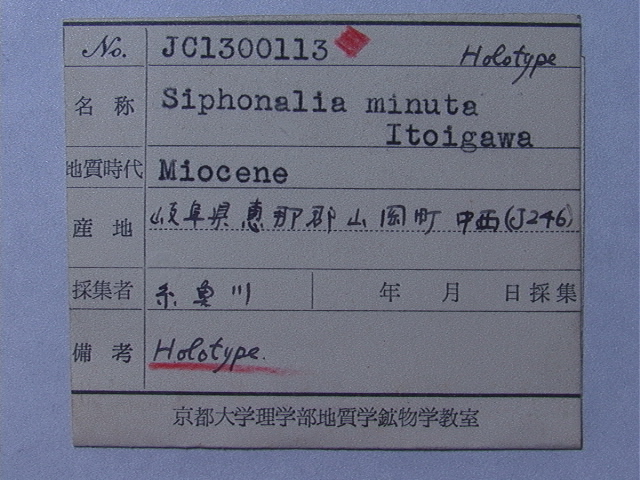 No. JC1300113 Holotype
名称 Siphonalia minuta
Itoigawa
地質時代 Miocene
産地 岐阜県恵那郡山岡町 中西(J246)
採集者 糸魚川 年 月 日採集
備考 Holotype.
京都大学理学部地質学鉱物学教室